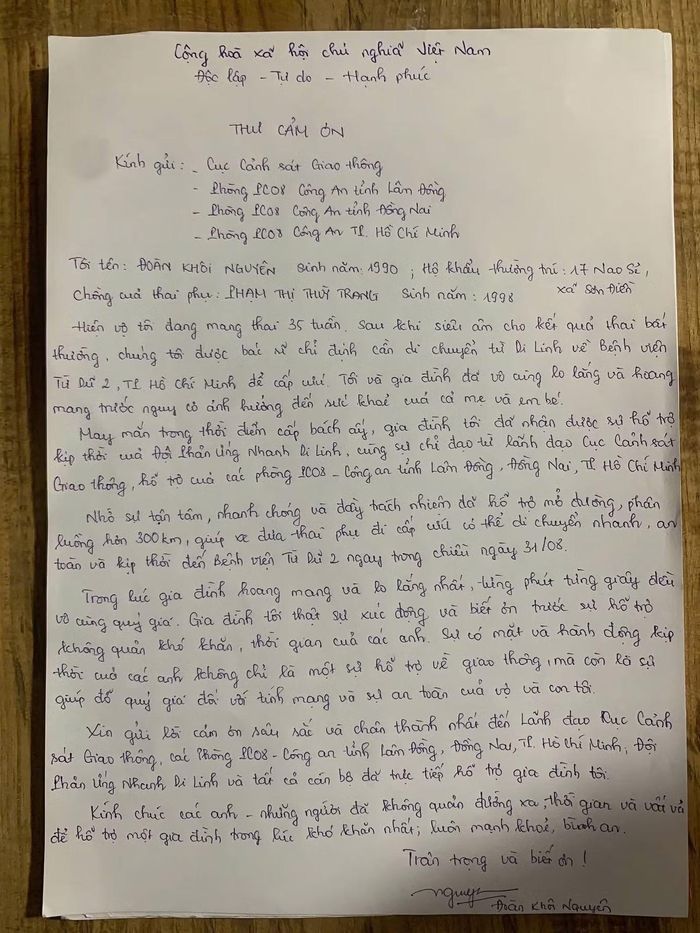 Cộng hoà xã hội chủ nghĩa Việt Nam
Độc lập - Tự do - Hạnh phúc
THƯ CẢM ƠN
Kính gửi: - Cục Cảnh sát Giao thông
- Phòng PC08 Công An tỉnh Lâm Đồng
- Phòng PC08 Công An tỉnh Đồng Nai
- Phòng PC08 Công An TP. Hồ Chí Minh
Tôi tên: ĐOÀN KHÔI NGUYÊN sinh năm: 1990; Hộ khẩu thường trú: 17 Nao Sẻ,
xã Sơn Điền
Chồng của thai phụ: PHẠM THỊ THUỲ TRANG sinh năm: 1998
Hiện vợ tôi đang mang thai 35 tuần. Sau khi siêu âm cho kết quả thai bất
thường, chúng tôi được bác sĩ chỉ định cần di chuyển từ Di Linh về Bệnh viện
Từ Dũ 2, TP Hồ Chí Minh để cấp cứu. Tôi và gia đình đã vô cùng lo lắng và hoang
mang trước nguy cơ ảnh hưởng đến sức khoẻ của cả mẹ và em bé.
May mắn trong thời điểm cấp bách ấy, gia đình tôi đã nhận được sự hỗ trợ
kịp thời của Đội Phản Ứng Nhanh Di Linh, cùng sự chỉ đạo từ lãnh đạo Cục Cảnh sát
Giao thông, hỗ trợ của các phòng PC08 - Công an tỉnh Lâm Đồng, Đồng Nai, TP Hồ Chí Minh
Nhờ sự tận tâm, nhanh chóng và đầy trách nhiệm đã hỗ trợ mở đường, phân
luồng hơn 300km, giúp xe đưa thai phụ đi cấp cứu có thể di chuyển nhanh, an
toàn và kịp thời đến Bệnh viện Từ Dũ 2 ngay trong chiều ngày 31/08.
Trong lúc gia đình hoang mang và lo lắng nhất, từng phút từng giây đều
vô cùng quý giá. Gia đình tôi thật sự xúc động và biết ơn trước sự hỗ trợ
không quản khó khăn, thời gian của các anh. Sự có mặt và hành động kịp
thời của các anh không chỉ là một sự hỗ trợ về giao thông, mà còn là sự
giúp đỡ quý giá đối với tính mạng và sự an toàn của vợ và con tôi.
Xin gửi lời cảm ơn sâu sắc và chân thành nhất đến Lãnh đạo Cục Cảnh
sát Giao thông, các Phòng PC08 - Công an tỉnh Lâm Đồng, Đồng Nai, TP. Hồ Chí Minh; Đội
Phản Ứng Nhanh Di Linh và tất cả cán bộ đã trực tiếp hỗ trợ gia đình tôi.
Kính chúc các anh - những người đã không quản đường xa, thời gian và vất vả
để hỗ trợ một gia đình trong lúc khó khăn nhất; luôn mạnh khoẻ, bình an.
Trân trọng và biết ơn!
Nguyên
Đoàn Khôi Nguyên